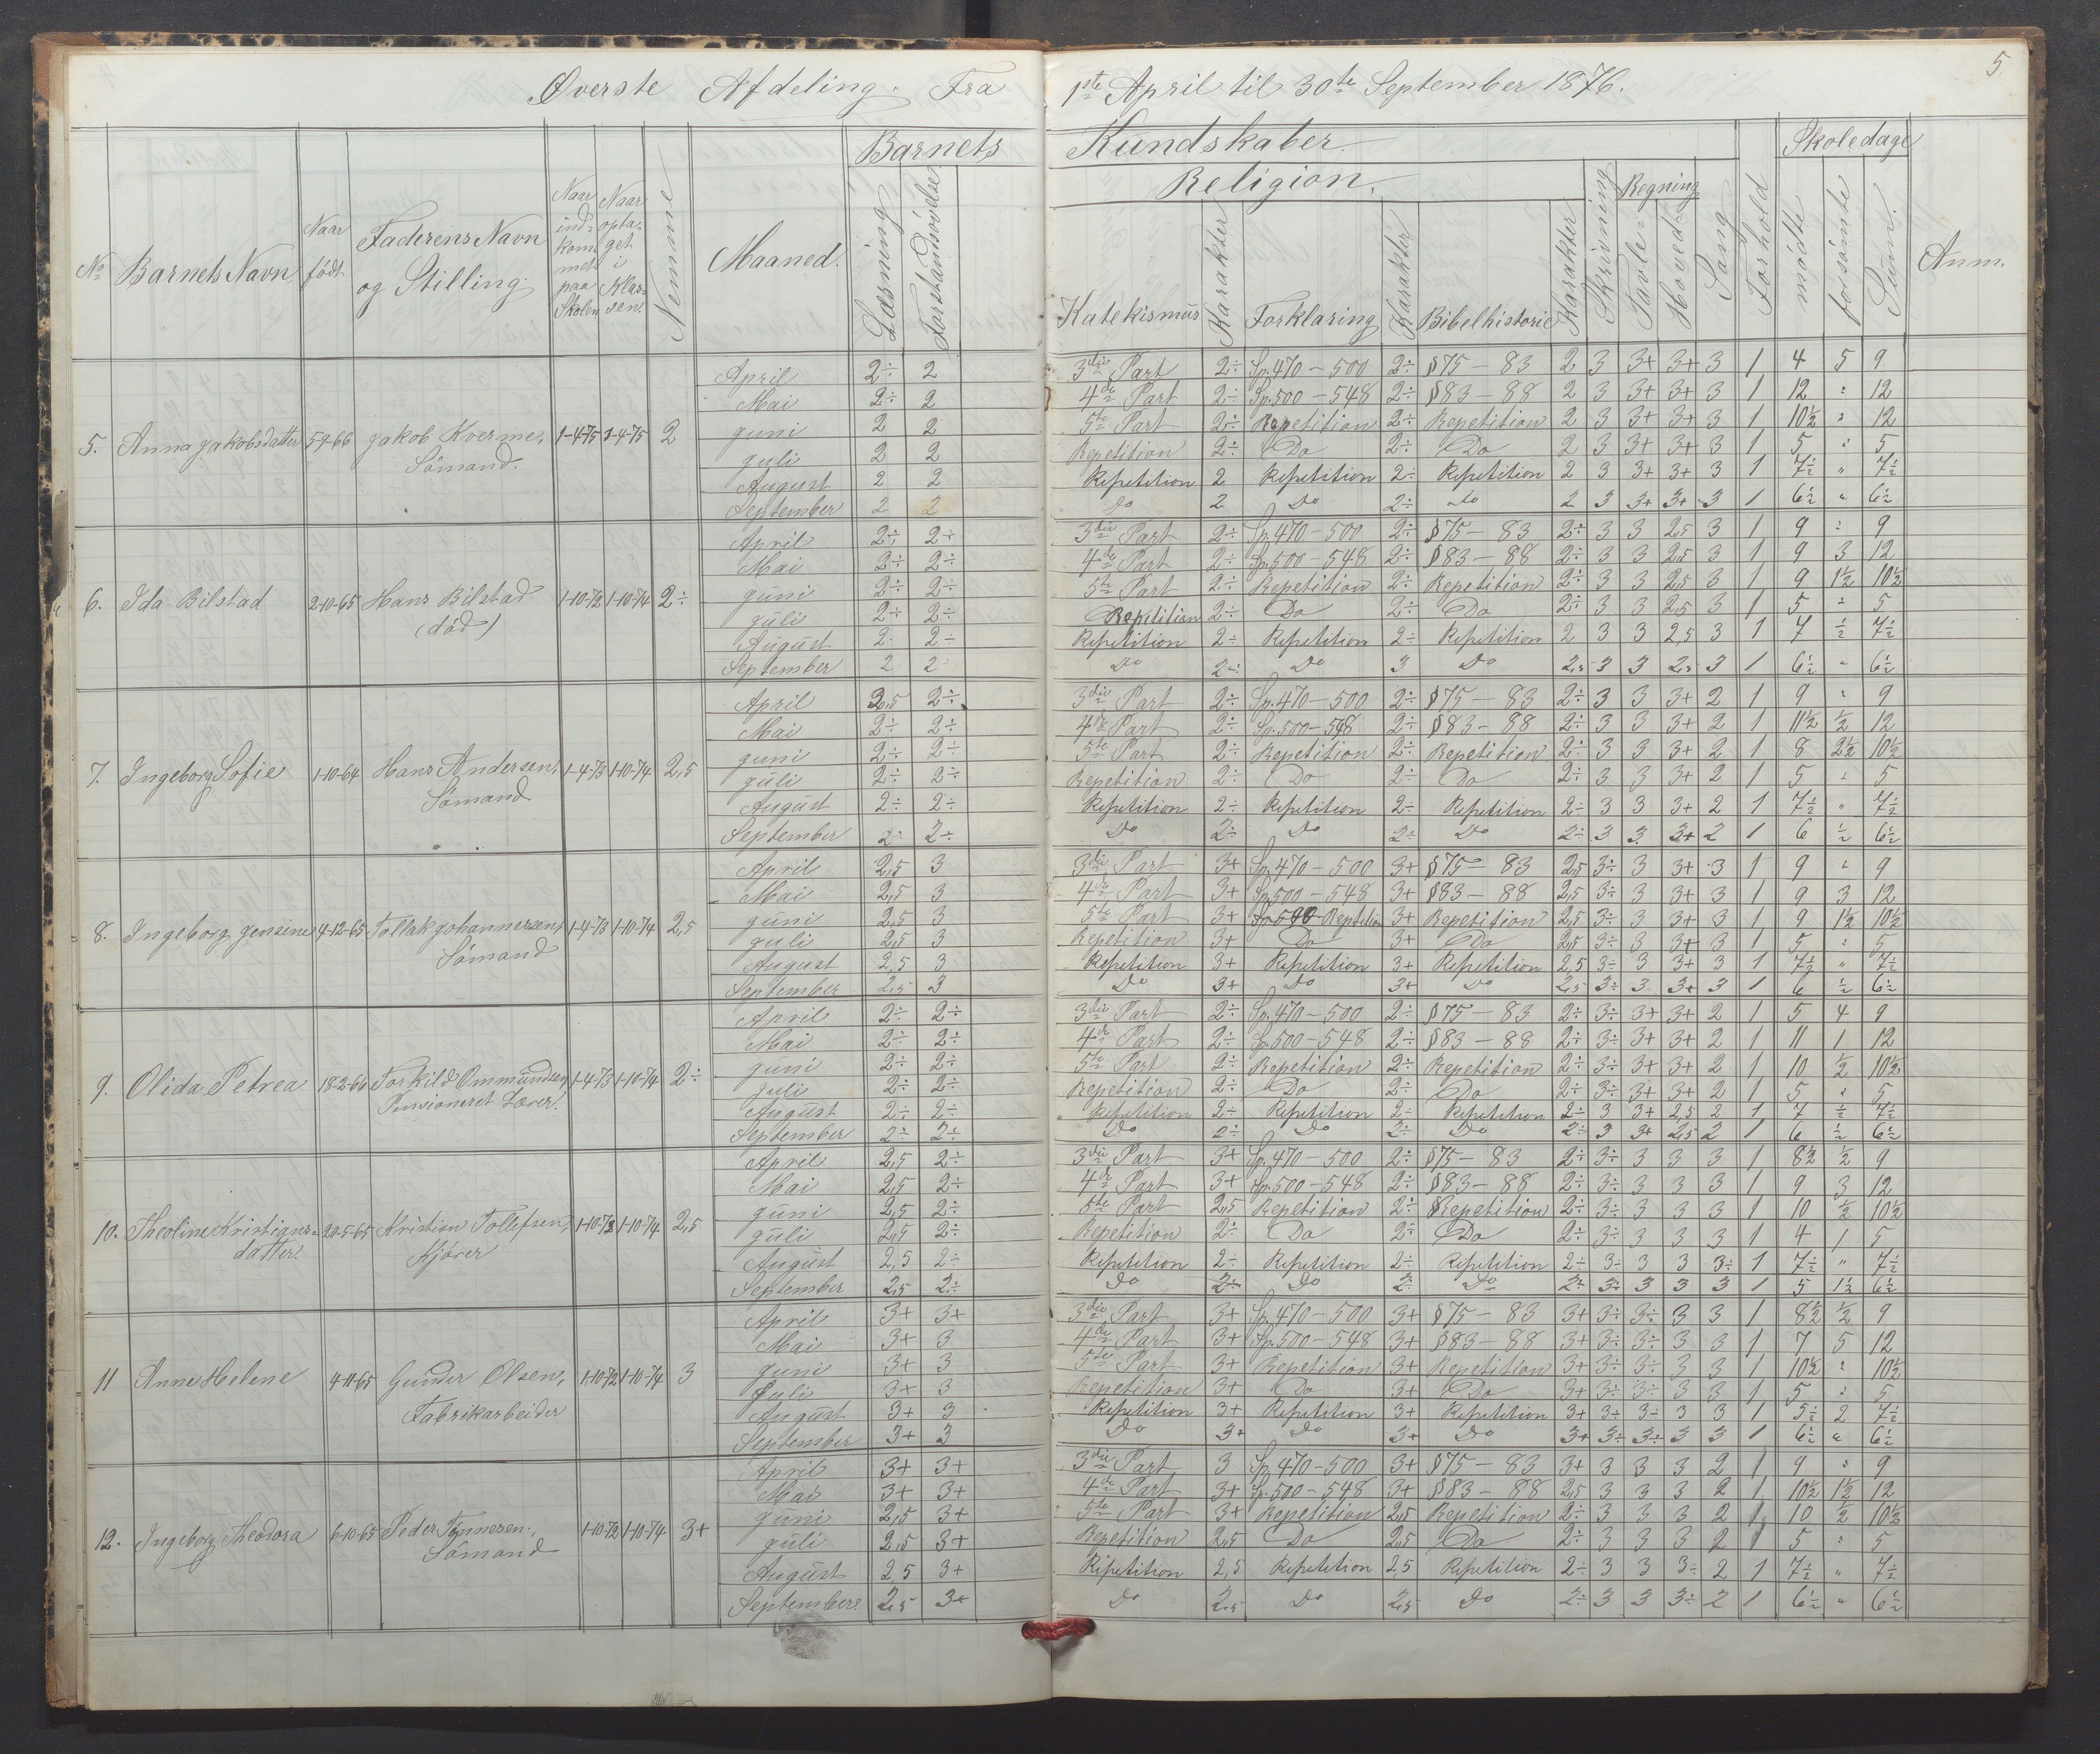 Øverste Afdeling. Fra 1ste April til 30te September 1876.
5.
Barnets Kundskaber.
Skoledage
Religion.
Regning
No Barnets Navn Naar født Faderens Navn og Stilling Naar ind=kommet paa Skolen Naar opta=get i Klas=sen. Nemme Maaned. Læsning Forstandsøvelse Katekismus Karakter Forklaring Karakter Bibelhistorie Karakter Skrivning Tavle= Hoved= Sang Forhold mødte forsømte Sum. Anm.
April 2÷ 2 3die Part 2÷ Sp. 470–500 2÷ §75–83 2 3 3+ 3+ 3 1 4 5 9
Mai 2÷ 2 4de Part 2÷ Sp. 500–548 2÷ §83–88 2 3 3+ 3+ 3 1 12 " 12
5. Anna Jakobsdatter 5-9-66 Jakob Kverme, Sømand. 1-4-75 1-4-75 2 Juni 2 2 5te Part 2÷ Repetition 2÷ Repetition 2 3 3+ 3+ 3 1 10½ " 12
Juli 2 2 Repetition 2÷ Do 2÷ Do 2 3 3+ 3+ 3 1 5 " 5
August 2 2 Repetition 2 Repetition 2÷ Repetition 2 3 3+ 3+ 3 1 7½ " 7½
September 2 2 Do 2 Do 2÷ Do 2 3 3+ 3+ 3 1 6½ " 6½
April 2÷ 2÷ 3die Part 2÷ Sp. 470–500 2÷ §75–83 2÷ 3 3 2,5 3 1 9 " 9
Mai 2÷ 2÷ 4de Part 2÷ Sp. 500–548 2÷ §83–88 2÷ 3 3 2,5 3 1 9 3 12
6. Ida Bilstad 2-10-65 Hans Bilstad (død) 1-10-72 1-10-74 2÷ Juni 2÷ 2÷ 5te Part 2÷ Repetition 2÷ Repetition 2÷ 3 3 2,5 3 1 9 1½ 10½
Juli 2÷ 2÷ Repetition 2÷ Do 2÷ Do 2÷ 3 3 2,5 3 1 5 " 5
August 2÷ 2÷ Repetition 2÷ Repetition 2÷ Repetition 2 3 3 2,5 3 1 7 ½ 7½
September 2 2 Do 2÷ Do 3 Do 2,5 3 3 2,5 3 1 6½ " 6½
April 2,5 2÷ 3die Part 2÷ Sp. 470–500 2÷ §75–83 2÷ 3 3 3+ 2 1 9 " 9
Mai 2÷ 2÷ 4de Part 2÷ Sp. 500–548 2÷ §83–88 2÷ 3 3 3+ 2 1 11½ ½ 12
7. Ingeborg Sofie 1-10-64 Hans Andersen, Sømand 1-4-73 1-10-74 2,5 Juni 2÷ 2÷ 5te Part 2÷ Repetition 2÷ Repetition 2÷ 3 3 3+ 2 1 8 2½ 10½
Juli 2÷ 2÷ Repetition 2÷ Do 2÷ Do 2÷ 3 3 3+ 2 1 5 " 5
August 2÷ 2÷ Repetition 2÷ Repetition 2÷ Repetition 2÷ 3 3 3+ 2 1 7½ " 7½
September 2÷ 2÷ Do 2÷ Do 2÷ Do 2÷ 3 3 3+ 2 1 6 ½ 6½
April 2,5 3 3die Part 3+ Sp. 470–500 3+ §75–83 2,5 3÷ 3 3+ 3 1 9 " 9
Mai 2,5 3 4de Part 3+ Sp. 500–548 3+ §83–88 2,5 3÷ 3 3+ 3 1 9 3 12
8. Ingeborg Jensine 4-12-65 Tollak Johannessen, Sømand 1-4-73 1-10-74 2,5 Juni 2,5 3 5te Part 3+ Repetition 3+ Repetition 2,5 3÷ 3 3+ 3 1 9 1½ 10½
Juli 2,5 3 Repetition 3+ Do 3+ Do 2,5 3÷ 3 3+ 3 1 5 " 5
August 2,5 3 Repetition 3+ Repetition 3+ Repetition 2,5 3÷ 3 3+ 3 1 7½ " 7½
September 2,5 3 Do 3+ Do 3+ Do 2,5 3÷ 3 3+ 3 1 6 ½ 6½
April 2÷ 2÷ 3die Part 2÷ Sp. 470–500 2÷ §75–83 2÷ 3÷ 3+ 3+ 2 1 5 4 9
Mai 2÷ 2÷ 4de Part 2÷ Sp. 500–548 2÷ §83–88 2÷ 3÷ 3+ 3+ 2 1 11 1 12
9. Olida Petrea 18-2-66 Torkild Ommundsen, Pensioneret Lærer. 1-4-73 1-10-74 2÷ Juni 2÷ 2÷ 5te Part 2÷ Repetition 2÷ Repetition 2÷ 3÷ 3+ 3+ 2 1 10 ½ 10½
Juli 2÷ 2÷ Repetition 2÷ Do 2÷ Do 2÷ 3÷ 3+ 3+ 2 1 5 " 5
August 2÷ 2÷ Repetition 2÷ Repetition 2÷ Repetition 2÷ 3 3+ 2,5 2 1 7 ½ 7½
September 2÷ 2÷ Do 2÷ Do 2÷ Do 2÷ 3 3+ 2,5 2 1 6 ½ 6½
April 2,5 2÷ 3die Part 3+ Sp. 470–500 2÷ §75–83 2÷ 3÷ 3 3 3 1 8½ ½ 9
Mai 2,5 2÷ 4de Part 3+ Sp. 500–548 2÷ §83–88 2÷ 3÷ 3 3 3 1 9 3 12
10. Theoline Kristians=datter. 20-5-65 Kristian Tollefsen, Kjører 1-10-72 1-10-74 2,5 Juni 2,5 2÷ 5te Part 2,5 Repetition 2÷ Repetition 2÷ 3÷ 3 3 3 1 10 ½ 10½
Juli 2,5 2÷ Repetition 2÷ Do 2÷ Do 2÷ 3÷ 3 3 3 1 4 1 5
August 2,5 2÷ Repetition 2÷ Repetition 2÷ Repetition 2÷ 3÷ 3 3 3÷ 1 7½ " 7½
September 2,5 2÷ Do 2÷ Do 2÷ Do 2÷ 3÷ 3 3 3 1 5 1½ 6½
April 3+ 3+ 3die Part 3+ Sp. 470–500 3+ §75–83 3+ 3÷ 3÷ 3 3 1 8½ ½ 9
Mai 3+ 3 4de Part 3+ Sp. 500–548 3+ §83–88 3+ 3÷ 3÷ 3 3 1 7 5 12
11 Anne Helene 4-11-65 Gunder Olsen, Fabrikarbeider 1-10-72 1-10-74 3 Juni 3+ 3 5te Part 3+ Repetition 3+ Repetition 3+ 3÷ 3÷ 3 3 1 10½ " 10½
Juli 3+ 3 Repetition 3+ Do 3+ Do 3+ 3÷ 3÷ 3 3 1 5 " 5
August 3+ 3 Repetition 3+ Repetition 3+ Repetition 3+ 3÷ 3÷ 3 3 1 5½ 2 7½
September 3+ 3 Do 3+ Do 3+ Do 3+ 3÷ 3÷ 3 3 1 6½ " 6½
April 3+ 3+ 3die Part 3 Sp. 470–500 3+ §75–83 3+ 3 3 3 2 1 9 " 9
Mai 3+ 3+ 4de Part 3+ Sp. 500–548 3+ §83–88 2,5 3 3 3 2 1 10½ 1½ 12
12. Ingeborg Theodora 6-10-65 Peder Tønnesen, Sømand 1-10-72 1-10-74 3+ Juni 2,5 3+ 5te Part 3+ Repetition 2,5 Repetition 2÷ 3 3 3 2 1 10 ½ 10½
Juli 2,5 3+ Repetition 2,5 Do 2,5 Do 2÷ 3 3 3 2 1 5 " 5
August 2,5 3+ Repetition 2,5 Repetition 2,5 Repetition 2÷ 3 3 3÷ 2 1 7½ " 7½
September 2,5 3+ Do 2,5 Do 2,5 Do 2÷ 3 3 3÷ 2 1 6½ " 6½